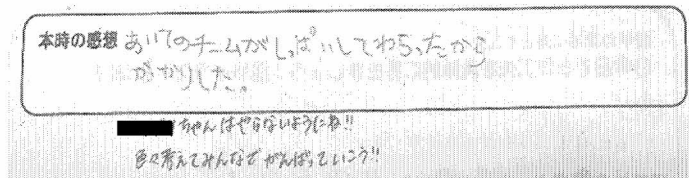 本時の感想 あいてのチームがしっぱいしてわらったから
がかりした。
ちゃんはやらないようにね!!
色々考えてみんなでがんばっていこう!!